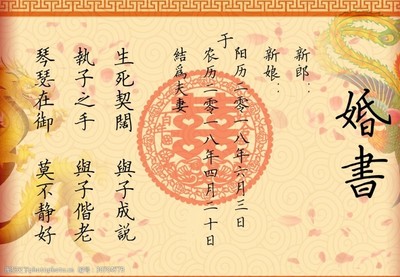 婚書
新郎：
新娘：
于
阳历二零一八年六月三日
农历二零一八年四月二十日
結爲夫妻
生死契闊　與子成説
執子之手　與子偕老
琴瑟在御　莫不静好